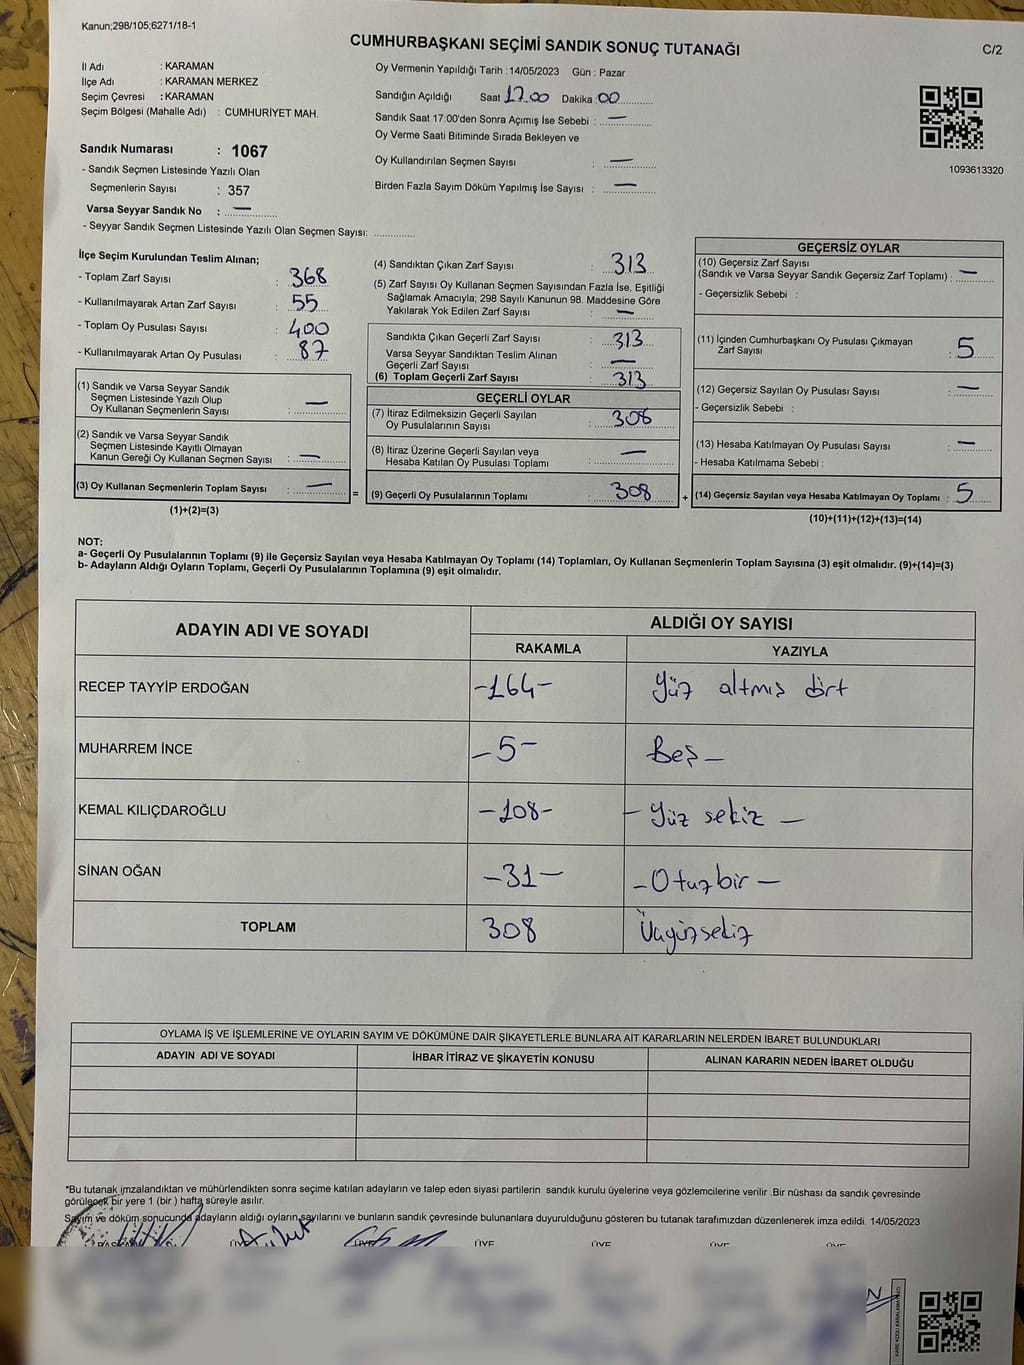 Kanun;298/105;6271/18-1
CUMHURBAŞKANI SEÇİMİ SANDIK SONUÇ TUTANAĞI
C/2
İl Adı : KARAMAN
İlçe Adı : KARAMAN MERKEZ
Seçim Çevresi : KARAMAN
Seçim Bölgesi (Mahalle Adı) : CUMHURİYET MAH.
Sandık Numarası : 1067
- Sandık Seçmen Listesinde Yazılı Olan
Seçmenlerin Sayısı : 357
Varsa Seyyar Sandık No : —
- Seyyar Sandık Seçmen Listesinde Yazılı Olan Seçmen Sayısı: ..............
Oy Vermenin Yapıldığı Tarih : 14/05/2023 Gün : Pazar
Sandığın Açıldığı Saat 17.00 Dakika :00
Sandık Saat 17:00'den Sonra Açımış İse Sebebi : —
Oy Verme Saati Bitiminde Sırada Bekleyen ve
Oy Kullandırılan Seçmen Sayısı : —
Birden Fazla Sayım Döküm Yapılmış İse Sayısı : —
1093613320
İlçe Seçim Kurulundan Teslim Alınan;
- Toplam Zarf Sayısı : 368
- Kullanılmayarak Artan Zarf Sayısı : 55
- Toplam Oy Pusulası Sayısı : 400
- Kullanılmayarak Artan Oy Pusulası : 87
(1) Sandık ve Varsa Seyyar Sandık
Seçmen Listesinde Yazılı Olup
Oy Kullanan Seçmenlerin Sayısı : —
(2) Sandık ve Varsa Seyyar Sandık
Seçmen Listesinde Kayıtlı Olmayan
Kanun Gereği Oy Kullanan Seçmen Sayısı : —
(3) Oy Kullanan Seçmenlerin Toplam Sayısı : — =
(1)+(2)=(3)
(4) Sandıktan Çıkan Zarf Sayısı : 313
(5) Zarf Sayısı Oy Kullanan Seçmen Sayısından Fazla İse, Eşitliği
Sağlamak Amacıyla; 298 Sayılı Kanunun 98. Maddesine Göre
Yakılarak Yok Edilen Zarf Sayısı : —
Sandıkta Çıkan Geçerli Zarf Sayısı : 313
Varsa Seyyar Sandıktan Teslim Alınan
Geçerli Zarf Sayısı : —
(6) Toplam Geçerli Zarf Sayısı : 313
GEÇERLİ OYLAR
(7) İtiraz Edilmeksizin Geçerli Sayılan
Oy Pusulalarının Sayısı : 308
(8) İtiraz Üzerine Geçerli Sayılan veya
Hesaba Katılan Oy Pusulası Toplamı : —
(9) Geçerli Oy Pusulalarının Toplamı : 308 +
GEÇERSİZ OYLAR
(10) Geçersiz Zarf Sayısı
(Sandık ve Varsa Seyyar Sandık Geçersiz Zarf Toplamı) : —
- Geçersizlik Sebebi :
(11) İçinden Cumhurbaşkanı Oy Pusulası Çıkmayan
Zarf Sayısı : 5
(12) Geçersiz Sayılan Oy Pusulası Sayısı : —
- Geçersizlik Sebebi :
(13) Hesaba Katılmayan Oy Pusulası Sayısı : —
- Hesaba Katılmama Sebebi :
(14) Geçersiz Sayılan veya Hesaba Katılmayan Oy Toplamı : 5
(10)+(11)+(12)+(13)=(14)
NOT:
a- Geçerli Oy Pusulalarının Toplamı (9) ile Geçersiz Sayılan veya Hesaba Katılmayan Oy Toplamı (14) Toplamları, Oy Kullanan Seçmenlerin Toplam Sayısına (3) eşit olmalıdır. (9)+(14)=(3)
b- Adayların Aldığı Oyların Toplamı, Geçerli Oy Pusulalarının Toplamına (9) eşit olmalıdır.
ADAYIN ADI VE SOYADI
ALDIĞI OY SAYISI
RAKAMLA YAZIYLA
RECEP TAYYİP ERDOĞAN -164- Yüz altmış dört
MUHARREM İNCE -5- Beş —
KEMAL KILIÇDAROĞLU -108- - Yüz sekiz —
SİNAN OĞAN -31- - Otuzbir —
TOPLAM 308 Üçyüzsekiz
OYLAMA İŞ VE İŞLEMLERİNE VE OYLARIN SAYIM VE DÖKÜMÜNE DAİR ŞİKAYETLERLE BUNLARA AİT KARARLARIN NELERDEN İBARET BULUNDUKLARI
ADAYIN ADI VE SOYADI İHBAR İTİRAZ VE ŞİKAYETİN KONUSU ALINAN KARARIN NEDEN İBARET OLDUĞU
*Bu tutanak imzalandıktan ve mühürlendikten sonra seçime katılan adayların ve talep eden siyasi partilerin sandık kurulu üyelerine veya gözlemcilerine verilir .Bir nüshası da sandık çevresinde
görülecek bir yere 1 (bir ) hafta süreyle asılır.
Sayım ve döküm sonucunda adayların aldığı oyların sayılarını ve bunların sandık çevresinde bulunanlara duyurulduğunu gösteren bu tutanak tarafımızdan düzenlenerek imza edildi. 14/05/2023
ÜYE ÜYE ÜYE ÜYE